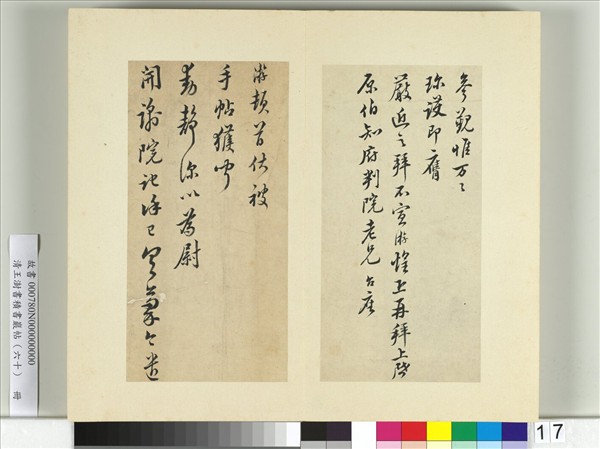 參覲惟万〻
珍護即膺
嚴近之拜不宣游惶恐再拜上啓
原伯知府判院老兄台座
游頓首伏被
手帖獲聞
動靜深以為慰
開諭院記
故書000780N000000000
清王澍書積書巖帖(六十) 冊
17